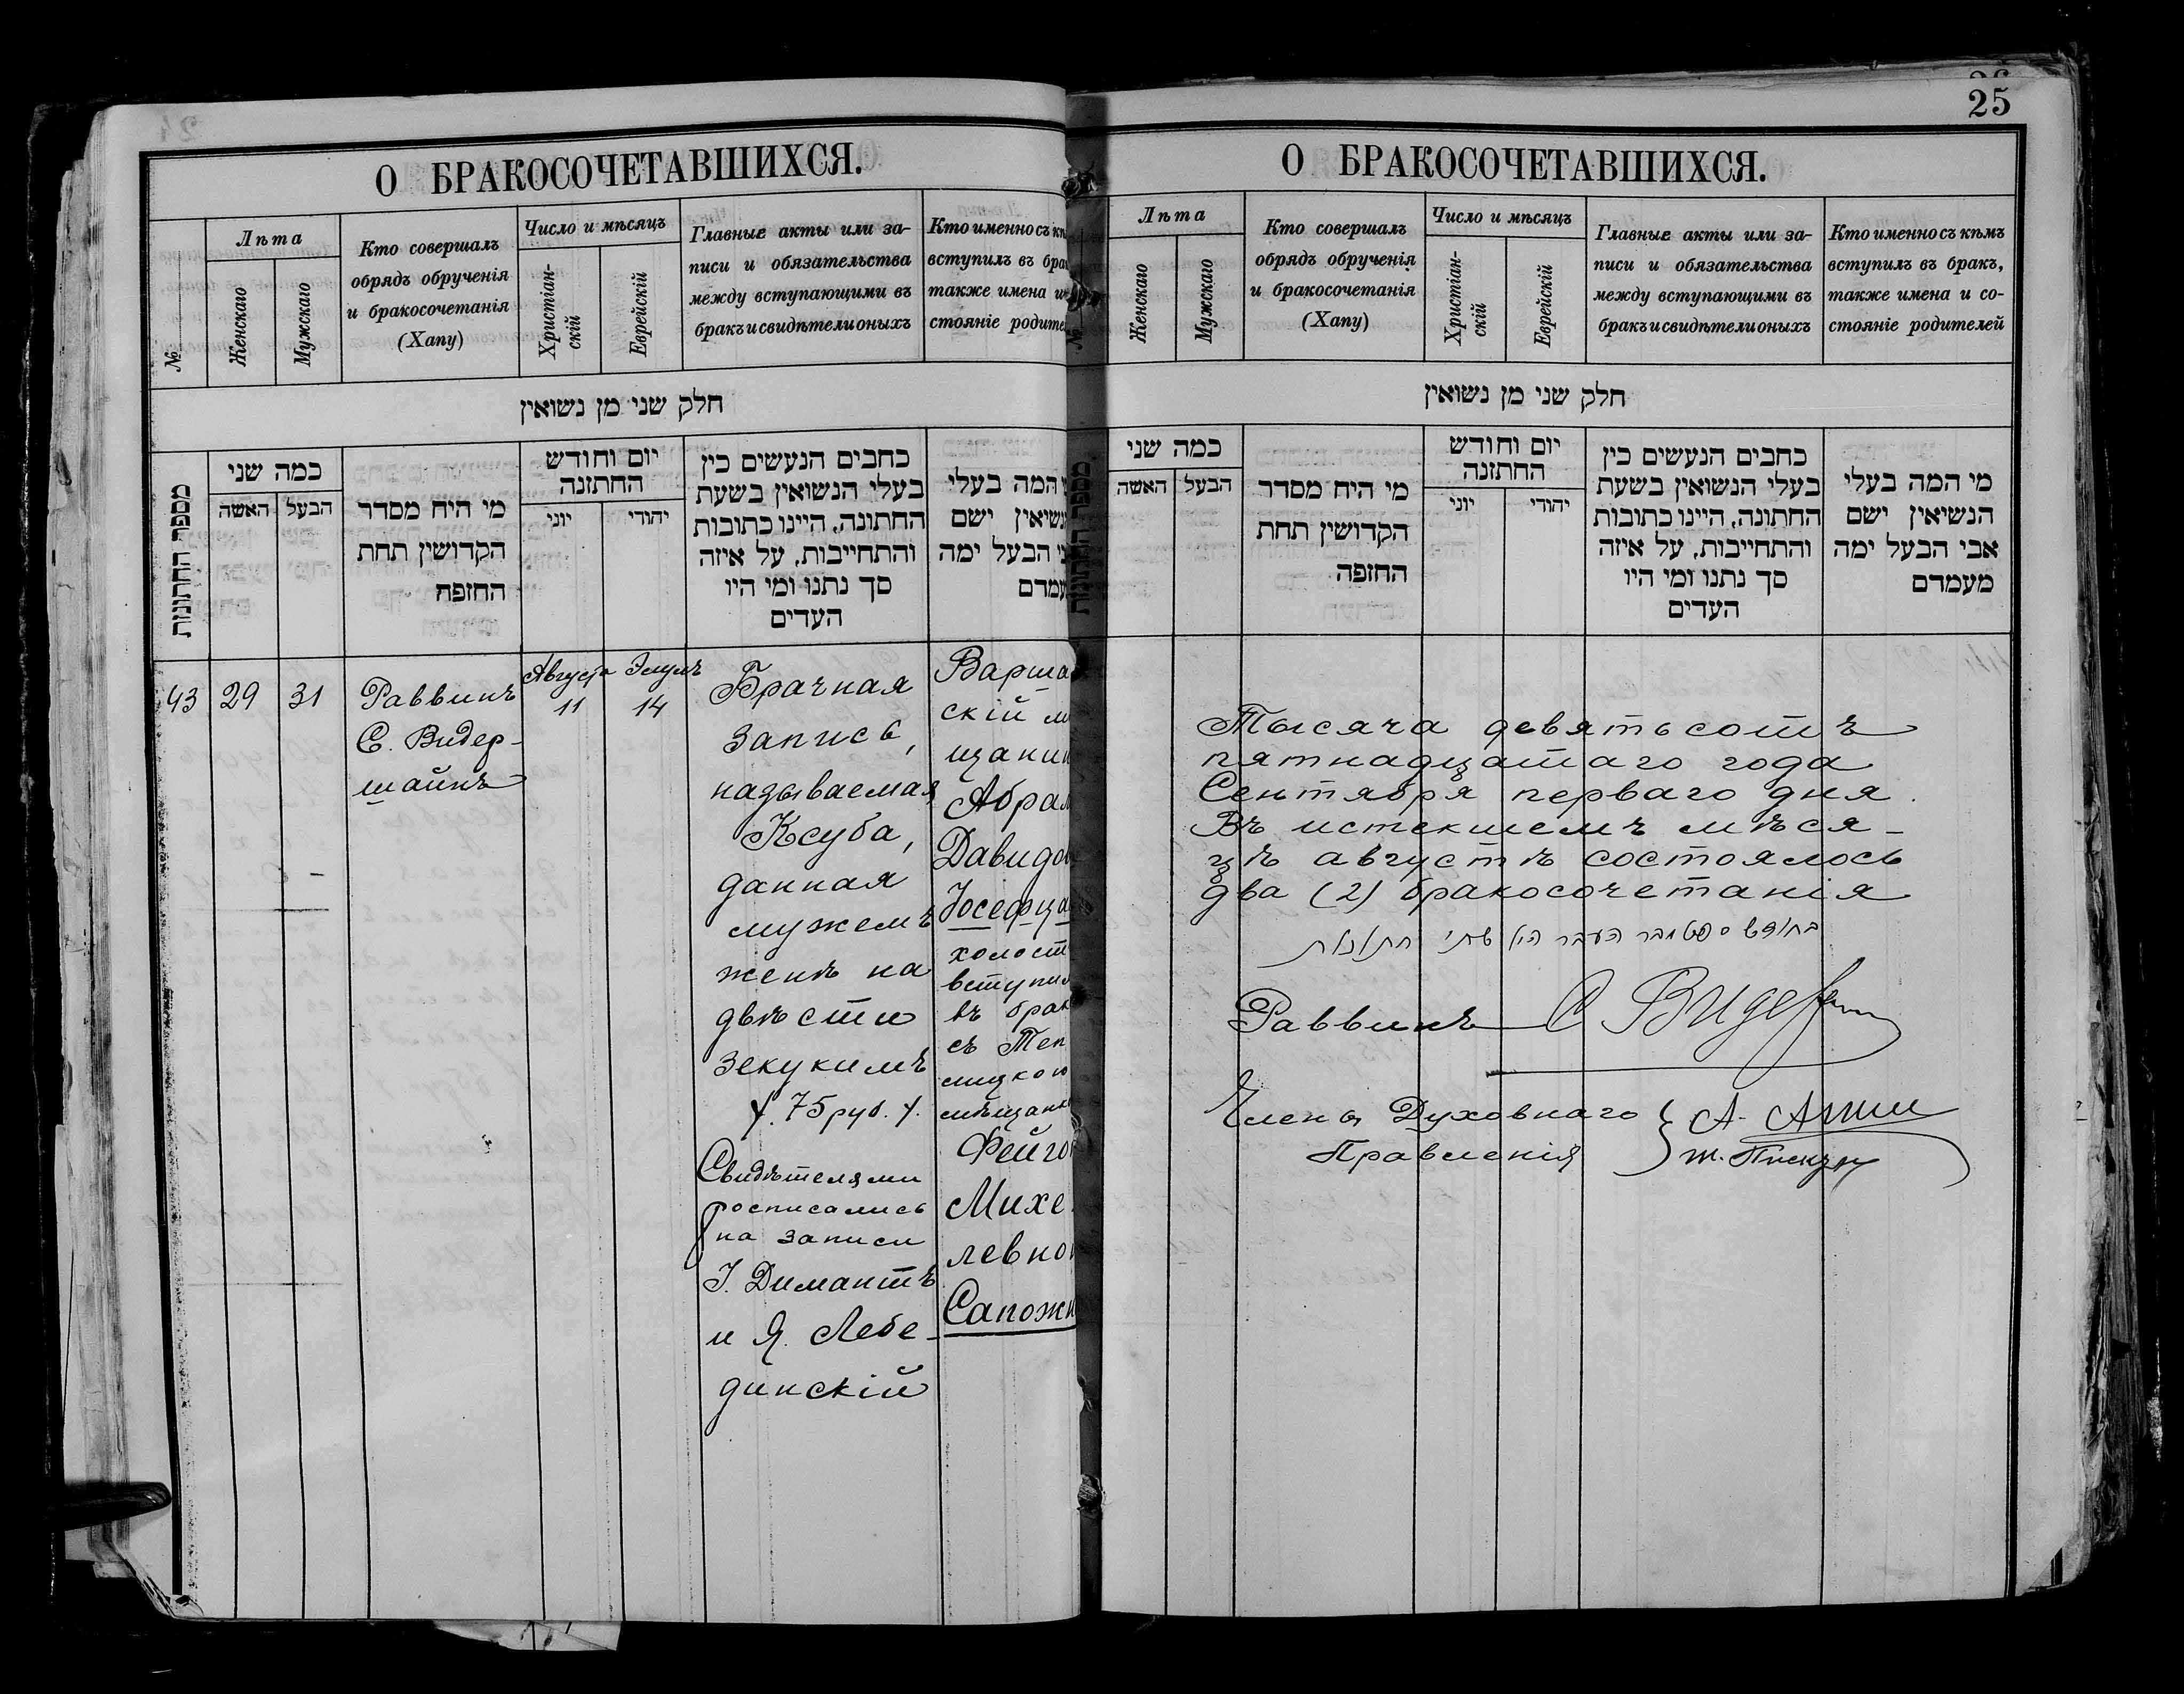 О БРАКОСОЧЕТАВШИХСЯ.
№
Лѣта
Женскаго
Мужскаго
Кто совершалъ
обрядъ обрученія
и бракосочетанія
(Хапу)
Число и мѣсяцъ
Христіан-
скій
Еврейскій
Главные акты или за-
писи и обязательства
между вступающими въ
бракъ и свидѣтели оныхъ
Кто именно съ
вступилъ въ
также имена
стояніе
חלק שני מן נשואין
מספר החתונות
כמה שני
האשה
הבעל
מי היח מסדר
הקדושין תחת
החזפה
יום וחודש
החתזנה
יוני
יהודי
כחבים הנעשים כין
בעלי הנשואין בשעת
החתונה, היינו כתובות
והתחייבות, על איזה
סך נתנו ומי היו
העדים
המה בעלי
ישם
הבעל ימה
43
29
31
Раввинъ
С. Видер-
шайнъ
Августа
11
Элулъ
14
Брачная
запись,
называемая
Ксуба,
данная
мужемъ
женѣ на
двѣсти
зекукимъ
75 руб.
Свидѣтелями
росписались
на записи
І. Димантъ
и Я. Лебе-
динскій
Варша
скій м
щанин
Абрам
Давидов
Іосефца
холост
вступил
въ брак
съ Теп
лицкою
мѣщанк
Фейго
Михе
левно
Сапожн
25
О БРАКОСОЧЕТАВШИХСЯ.
Лѣта
Женскаго
Мужскаго
Кто совершалъ
обрядъ обрученія
и бракосочетанія
(Хапу)
Число и мѣсяцъ
Христіан-
скій
Еврейскій
Главные акты или за-
писи и обязательства
между вступающими въ
бракъ и свидѣтели оныхъ
Кто именно съ кѣмъ
вступилъ въ бракъ,
также имена и со-
стояніе родителей
חלק שני מן נשואין
כמה שני
האשה
הבעל
מי היח מסדר
הקדושין תחת
החזפה
יום וחודש
החתזנה
יוני
יהודי
כחבים הנעשים כין
בעלי הנשואין בשעת
החתונה, היינו כתובות
והתחייבות, על איזה
סך נתנו ומי היו
העדים
מי המה בעלי
הנשיאין ישם
אבי הבעל ימה
מעמדם
Тысяча девятьсотъ
пятнадцатаго года
Сентября перваго дня.
Въ истекшемъ мѣся-
цѣ августѣ состоялось
два (2) бракосочетанія
העבר היו שתי חתונות
Раввинъ С Видер
Члены Духовнаго
Правленія